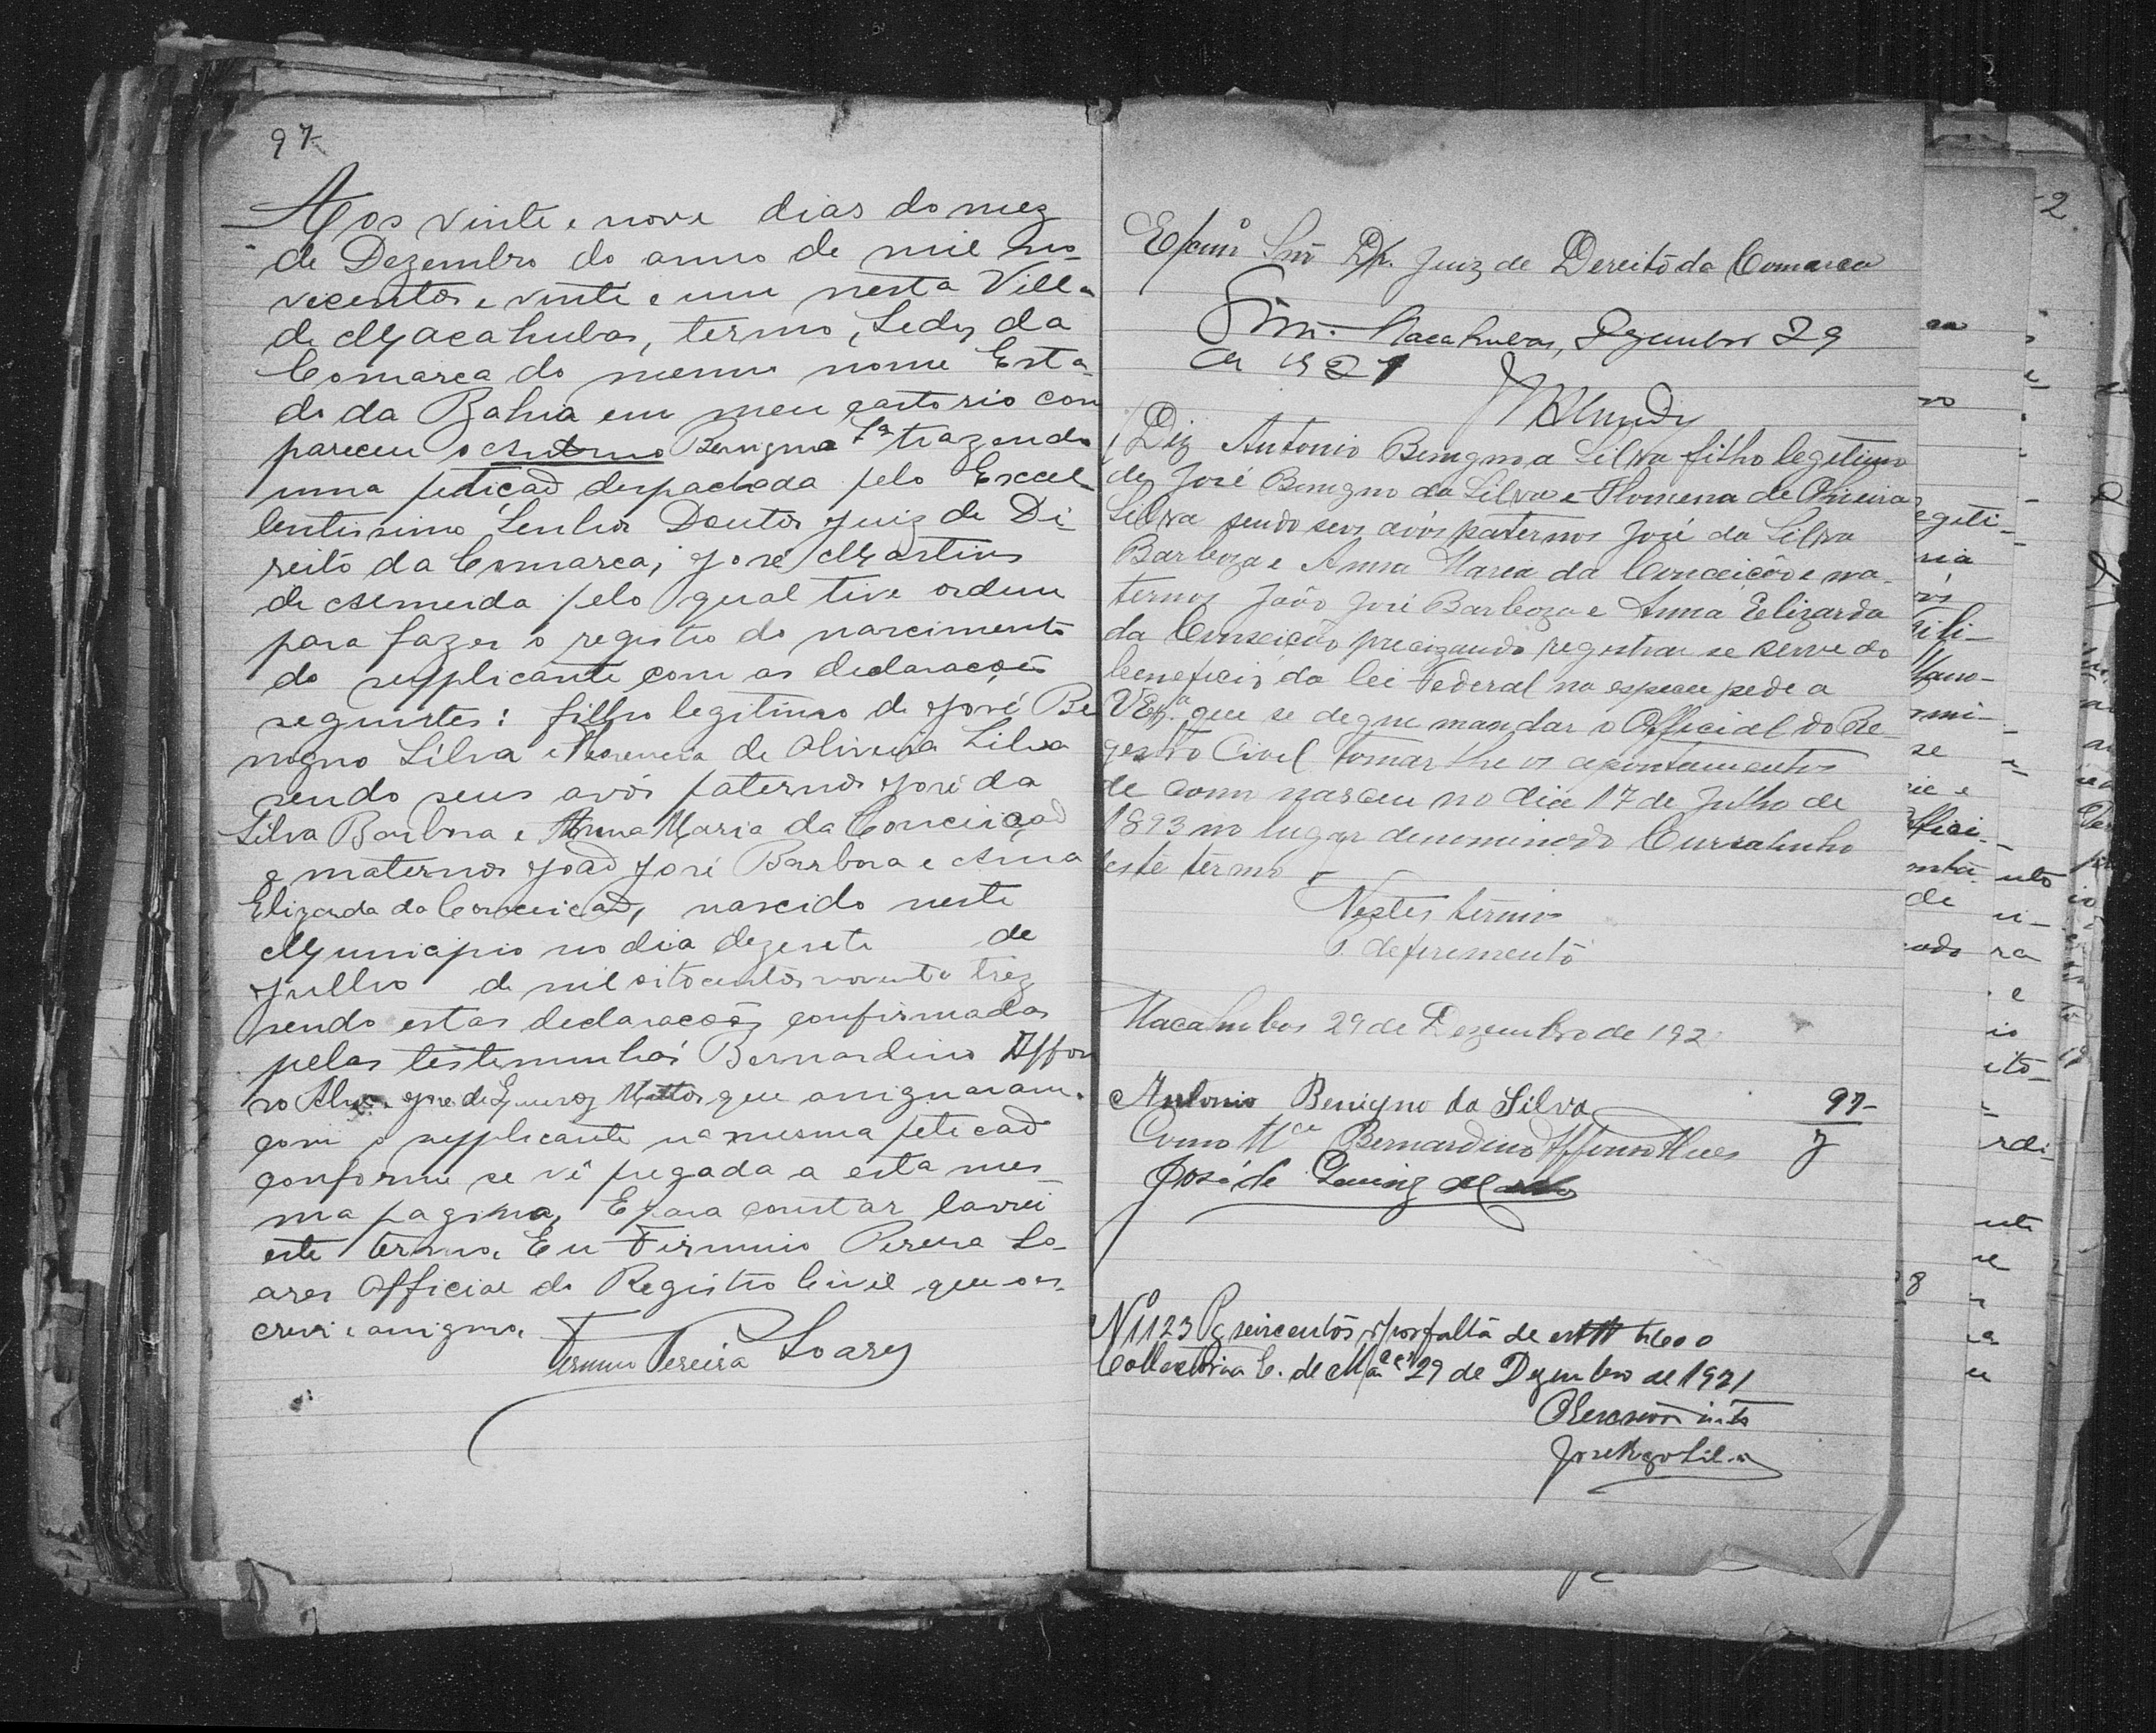 97
Aos vinte e nove dias do mez
de Dezembro do anno de mil no-
vecentos e vinte e um nesta Villa
de Macahubas, termo, Sede da
Comarca do mesmo nome Esta-
do da Bahia em meu cartorio com
pareceu o Antonio Benigno Sa trazendo
uma petição despachada pelo Excel-
lentissimo Senhor Doutor Juiz de Di
reito da Comarca, José Martins
de Almeida pelo qual tive ordem
para fazer o registro do nascimento
do supplicante com as declarações
seguintes: filho legitimo de José Be
nigno Silva e de Oliveira Silva
sendo seus avós paternos José da
Silva Barbosa e Anna Maria da Conceição
e maternos João José Barbosa e Anna
Elizarda da Conceição, nascido neste
Municipio no dia dezesete de
Julho de mil oitocentos noventa trez
sendo estas declarações confirmadas
pelas testimunhas Bernardino Affon
so Alves e José de Mattos que assignaram
com o supplicante na mesma petição
conforme se vê pregada a esta mes-
ma pagina, E para constar lavrei
este termo. Eu Firmino Pereira So-
ares Official do Registro Civil que es-
crevi e assigno.
Firmino Pereira Soares
Exmo Snr Dr. Juiz de Dereito da Comarca
Sim. Macahubas, Dezembro 29
de 1921
MAlmeida
Diz Antonio Benigno a Silva filho legetimo
de José Benigno da Silva e Flomena de Oliveira
Silva sendo seus avós paternos José da Silva
Barboza e Anna Maria da Conceição e ma-
ternos João José Barboza e Anna Elizarda
da Conseição precizando registrar se serve do
beneficio da lei Federal na especie pede a
VExa. que se degne mandar o Official do Re-
gestro Civel tomar lhe os apontamentos
de como nasceu no dia 17 de Julho de
1893 no lugar denominado Curralinho
deste termo
Nestes termos
P. deferemento
Macahubas 29 de Dezembro de 192
Antonio Benigno da Silva
97-
Como Bernardino Affonso Alves
7
José de Mattos
No 1123 Pg seiscentos rs por falta de 600
Collectoria E. de 29 de Dezembro de 1921
O Escrivão into
José Rego Silva